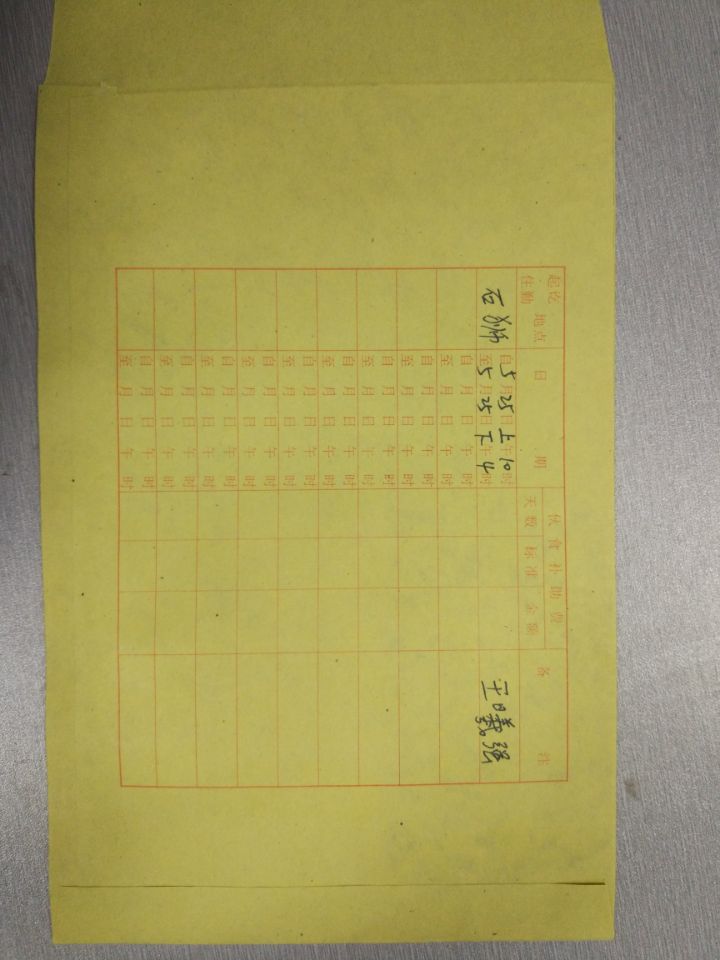 起讫 地点 日期 伙食补助费 备注
住勤 天数 标准 金额
石狮 自5月25日上午10时
至5月25日下午4时
自 月 日 午 时
至 月 日 午 时
自 月 日 午 时
至 月 日 午 时
自 月 日 午 时
至 月 日 午 时
自 月 日 午 时
至 月 日 午 时
自 月 日 午 时
至 月 日 午 时
自 月 日 午 时
至 月 日 午 时
自 月 日 午 时
至 月 日 午 时
自 月 日 午 时
至 月 日 午 时
自 月 日 午 时
至 月 日 午 时